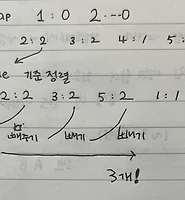 ap 1 : 0 2 - - 0
2 : 2 3 : 2 4 : 1 5 :
기준 정렬
2 : 2 3 : 2 5 : 2 1 : 1
빼주기 빼기 빼기
3개!